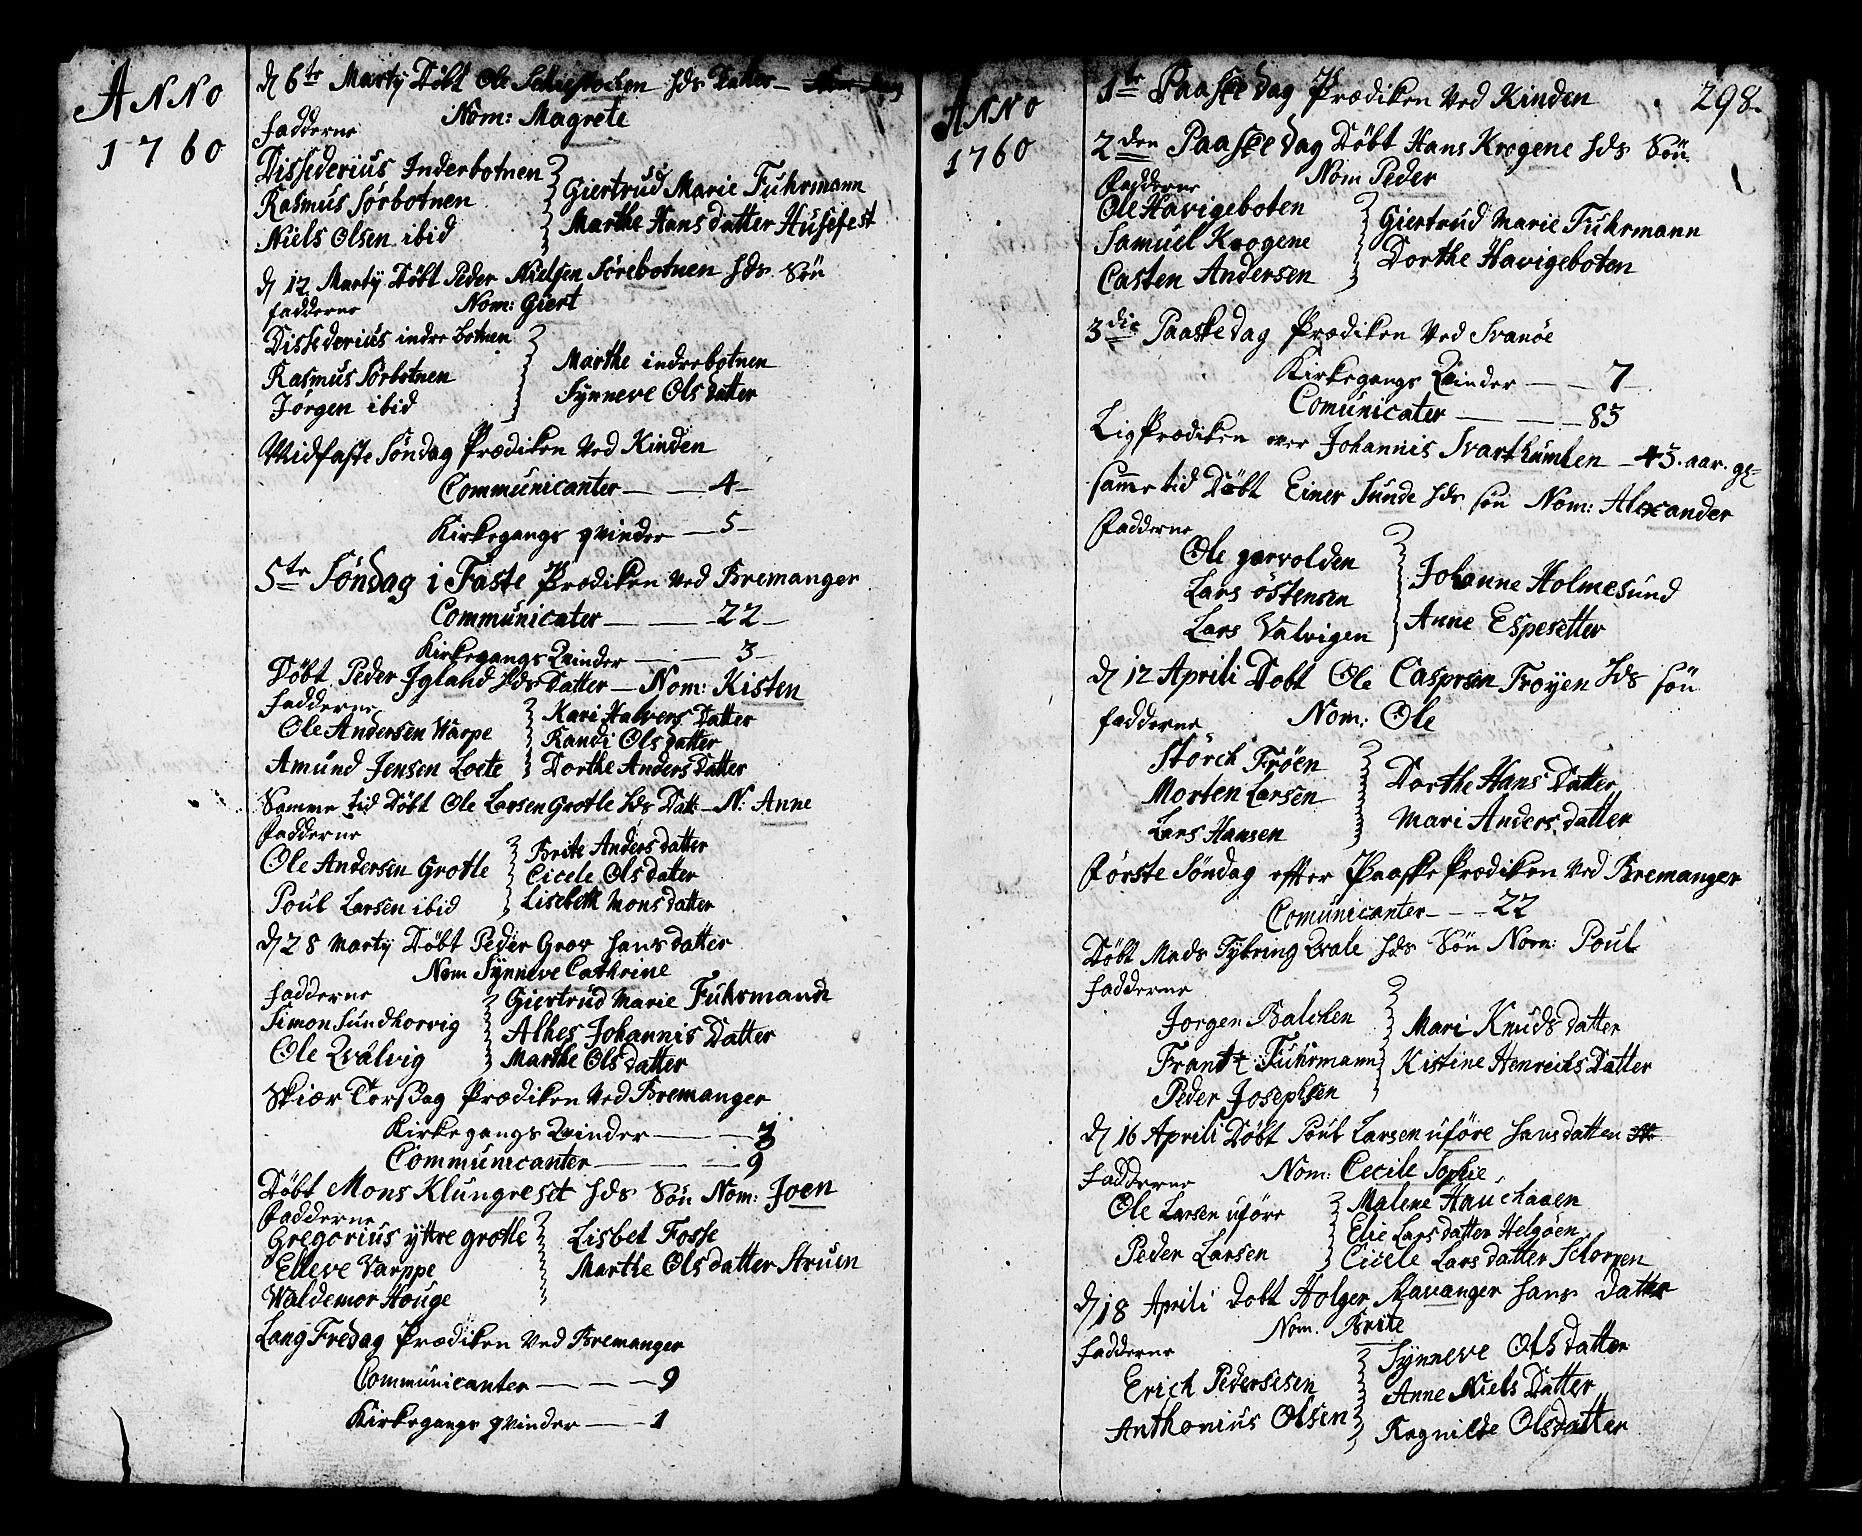 ANNO
1760
d 6te Martij Döbt Ole hds Datter
Nom: Magrete
fadderne
Dissederius Inderbotnen
Rasmus Sörbotnen
Niels Olsen ibid
Giertrud Marie Fuhrmann
Marthe Hans datter Husefest
d 12 Martij Döbt Peder Nielsen Sörebotnen hds Sön
fadderne Nom: Giert
Dissederius indre botnen
Rasmus Sörbotnen
Jörgen ibid
Marthe indrebotnen
Synneve Ols datter
Midfaste Söndag Prædiken Ved Kinden
Communicanter — 4
Kirkegangs qvinder — 5
5te Söndag i Faste Prædiken Ved Bremanger
Communicater — 22
Kirkegangs Qvinder — 3
Döbt Peder Igland hds Datter — Nom: Kisten
fadderne
Ole Andersen Warpe
Amund Jensen Loete
Kari Halvers Datter
Randi Ols datter
Dorthe Anders Datter
Samme tid Döbt Ole Larsen Grotle hds Datt — N: Anne
fadderne
Ole Andersen Grotle
Poul Larsen ibid
Brite Anders datter
Cicele Ols datter
Lisebeth Mons datter
d 28 Martij Döbt Peder Grov hans datter
Nom Synneve Cathrine
fadderne
Simon Sundhorvig
Ole Qvalvig
Giertrud Marie Fuhrmann
Alhes Johannis Datter
Marthe Ols datter
Skiær Torsdag Prædiken Ved Bremanger
Kirkegangs Qvinder — 3
Communicanter — 9
Döbt Mons Klungreset hds Sön Nom: Joen
fadderne
Gregorius yttre grotle
Elleve Varppe
Waldemor Houge
Lisbet Fosse
Marthe Ols datter Struen
Lang Fredag Prædiken Ved Bremanger
Communicanter — 9
Kirkegangs qvinder — 1
ANNO
1760
298.
1te Paaske dag Prædiken Ved Kinden
2den Paaske dag Döbt Hans Krogene hds Sön
Nom Peder
fadderne
Ole Havigeboten
Samuel Krogene
Casten Andersen
Giertrud Marie Fuhrmann
Dorthe Havigeboten
3die Paaske dag Prædiken Ved Svanöe
Kirkegangs Qvinder — 7
Comunicater — 83
Lig Prædiken over Johannis Svarthumlen — 43. aar. gl
samme tid Döbt Einer Sunde hds sön Nom: Alexander
fadderne
Ole garvolden
Lars östensen
Lars Valvigen
Johanne Holmesund
Anne Espesetter
d 12 Aprili Döbt Ole Casprsen Froyen hds sön
fadderne Nom: Ole
Störch Fröen
Morten Larsen
Lars Hansen
Dorthe Hans Datter
Mari Anders datter
Förste Söndag efter Paaske Prædiken Ved Bremanger
Comunicanter — 22
Döbt Mads Tykring Qvale hds Sön Nom: Poul
fadderne
Jorgen Balchen
Frantz Fuhrmann
Peder Josephsen
Mari Knuds datter
Kistine Henrichs Datter
d 16 Aprili Döbt Poul Larsen uföre hans datter
fadderne Nom: Cecile Sophie
Ole Larsen uföre
Peder Larsen
Malene Hauchaaen
Elie Lars datter Helgöen
Cicele Lars datter Schorpen
d 18 Aprili Döbt Holger Stavanger hans Datter
Nom. Brite
fadderne
Erich Pedersesen
Anthonius Olsen
Synneve Ols datter
Anne Niels Datter
Ragnilde Olsdatter